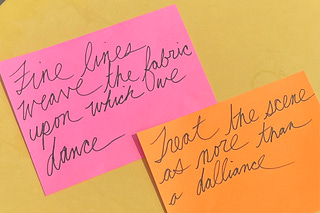 Fine lines
weave the fabric
upon which we
dance
Treat the scene
as more than
a dalliance